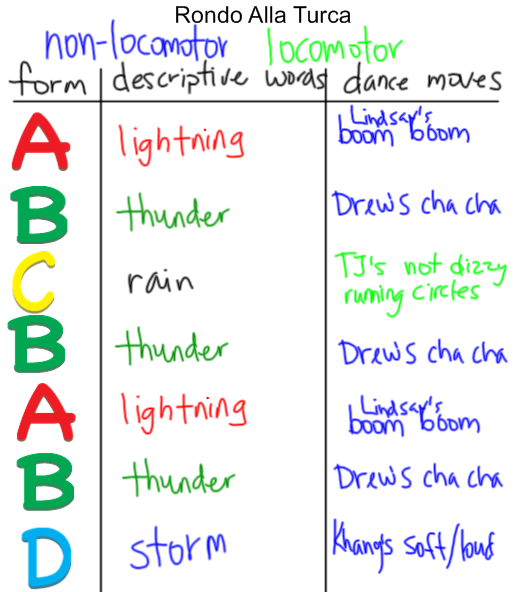 Rondo Alla Turca
non-locomotor locomotor
form descriptive words dance moves
A lightning Lindsay's boom boom
B thunder Drew's cha cha
C rain TJ's not dizzy
running circles
B thunder Drew's cha cha
A lightning Lindsay's boom boom
B thunder Drew's cha cha
D storm Khang's soft/loud